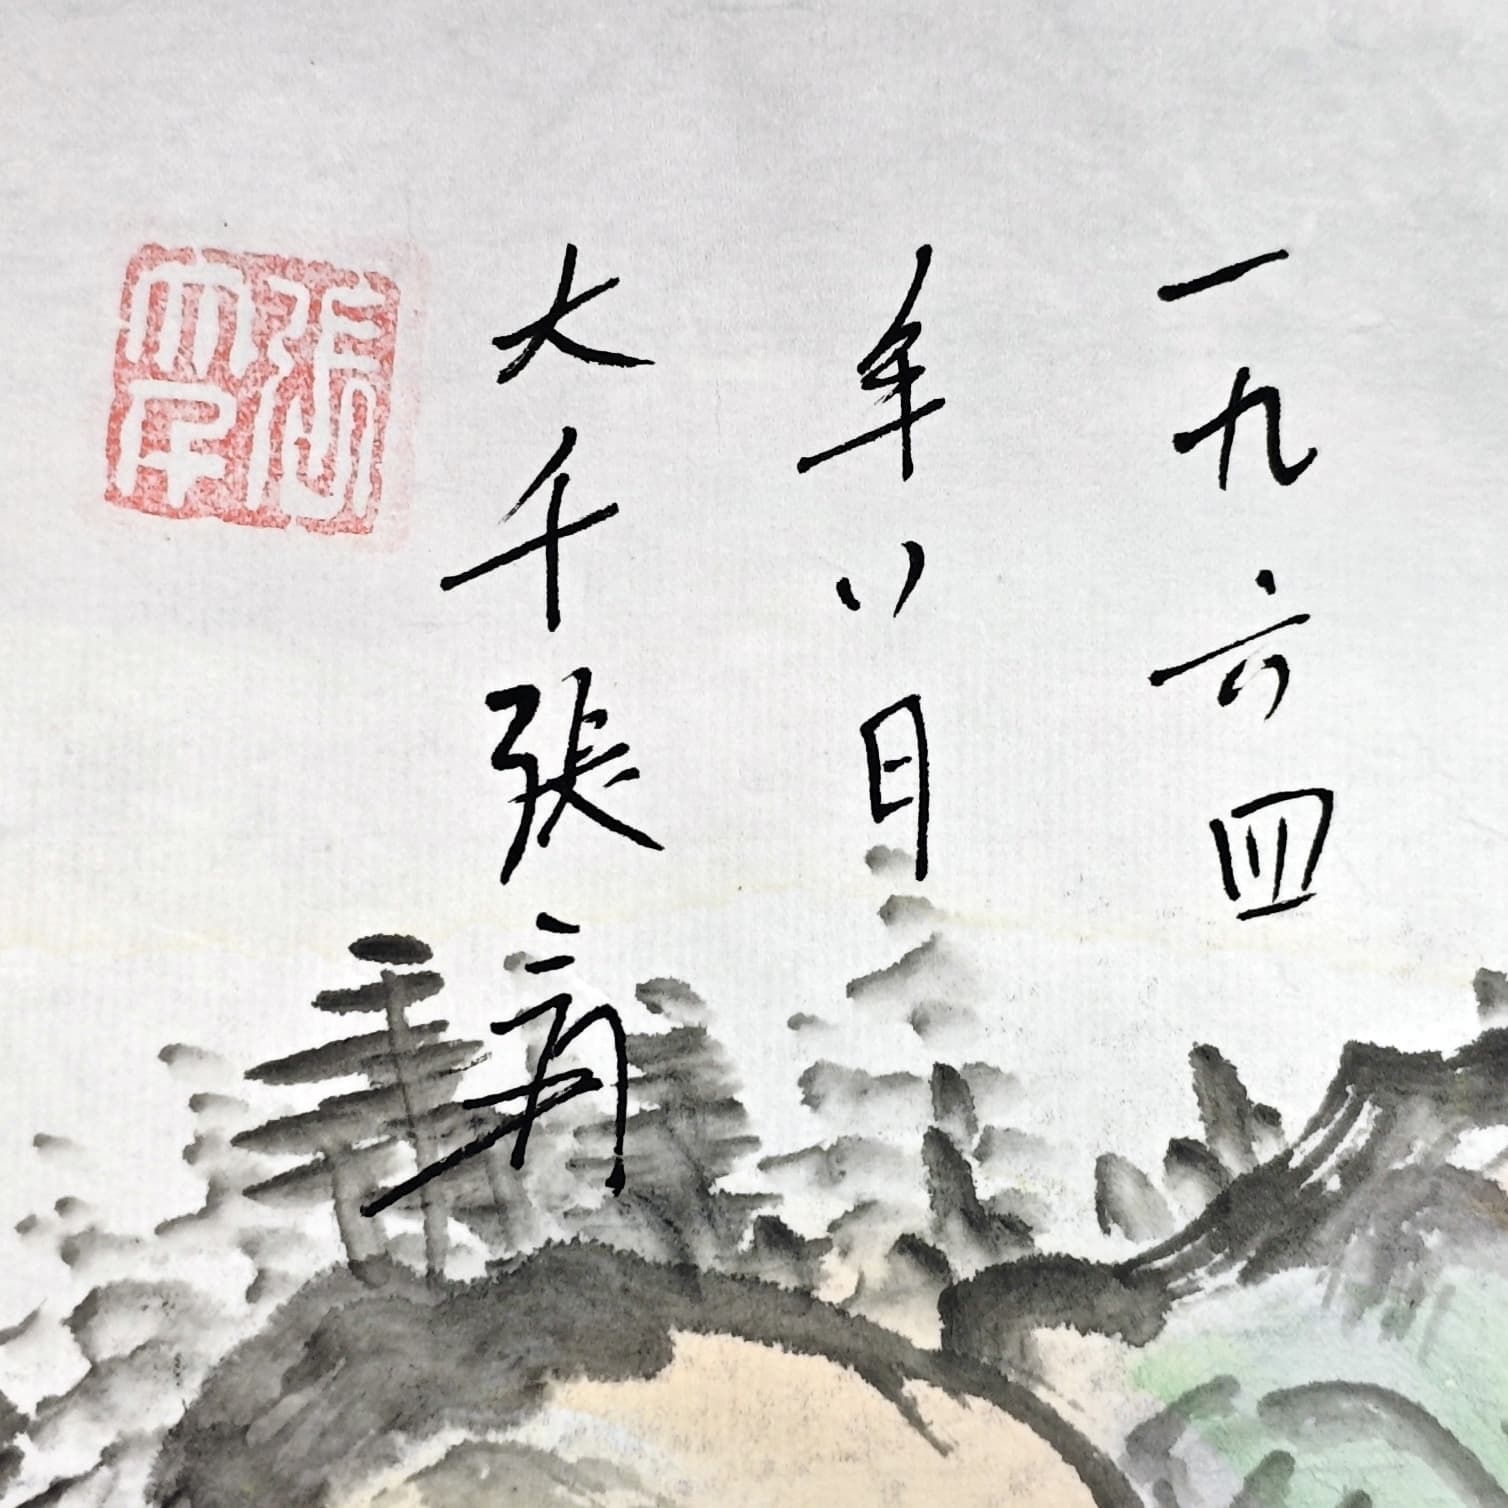 一九六四
年八月
大千張爰
張爰
大千